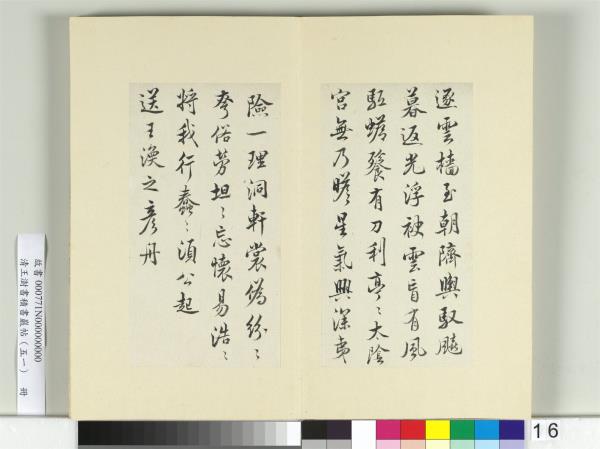 逐雲檣至朝隮輿馭飈
暮返光浮袂雲盲有風
駈蟾餮有刀利亭〻太陰
宮無乃瞻星氣興深夷
險一理洞軒裳偽紛〻
夸俗勞坦〻忘懷易浩〻
將我行蠢〻須公起
送王渙之彥舟
故書 000771N000000000
清王澍書積書巖帖（五一） 冊
16